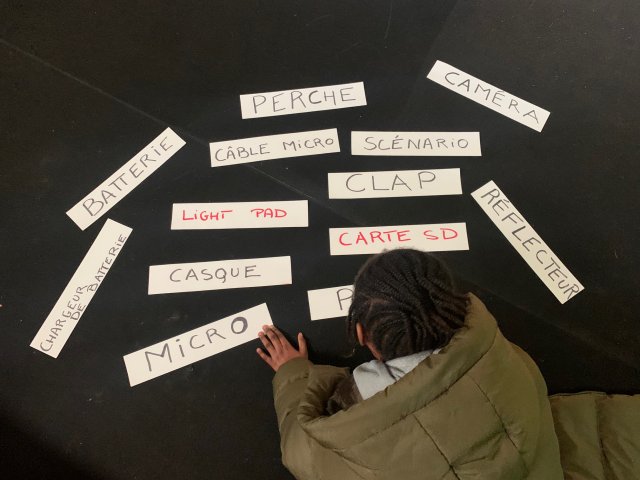 CAMÉRA
PERCHE
CÂBLE MICRO
SCÉNARIO
BATTERIE
CLAP
LIGHT PAD
CARTE SD
RÉFLECTEUR
CHARGEUR
DE BATTERIE
CASQUE
MICRO